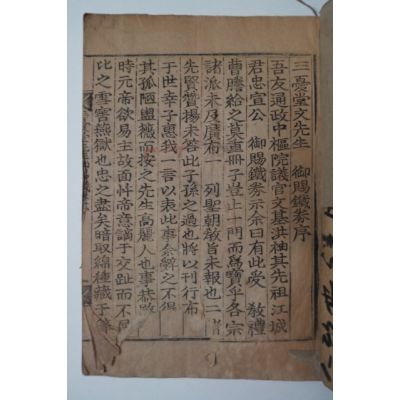 三憂堂文先生 御賜鐵券序
吾友通政中樞院議官文基洪袖其先祖江城
君忠宣公 御賜鐵券示余曰有此受 敎禮
曹謄給之冊子豈止一門而爲寶乎各宗
諸派未及廣布一 列聖朝敎旨未報也二
先賢贊揚未答此子孫之過也將以刊行布
于世幸子惠我一言以表此事余辭之不得
其孤陋盥薇而按之先生高麗人也事恭愍
時元帝欲易主故面忤帝意謫于交趾而不屈
比之雪窖燕獄也忠之盡矣暗取綿種藏于